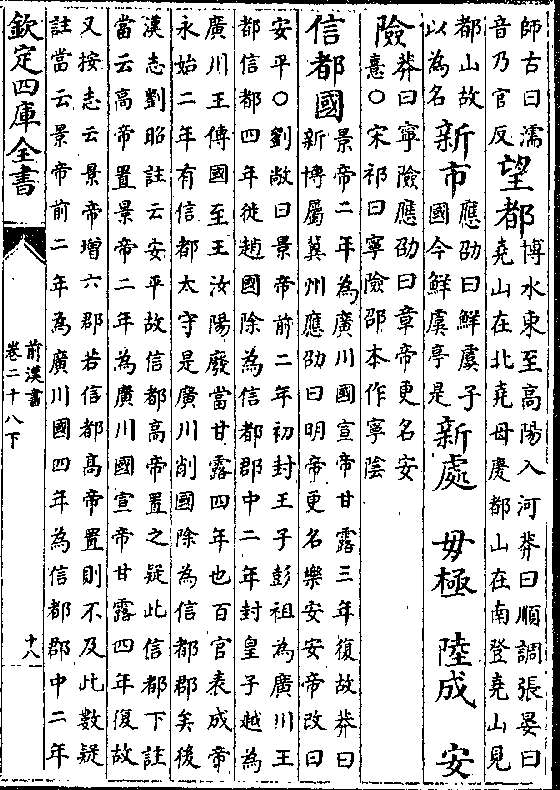 師古曰濡
音乃官反
望都
博水東至高陽入河莽曰順調張晏曰
堯山在北堯母慶都山在南登堯山見
都山故
以為名
新市
應劭曰鮮虞子
國今鮮虞亭是
新處 毋極 陸成 安
險
莽曰寧險應劭曰章帝更名安
憙○宋祁曰寧險邵本作寧陰
信都國
景帝二年為廣川國宣帝甘露三年復故莽曰
新博屬冀州應劭曰明帝更名樂安安帝改曰
安平○劉敞曰景帝前二年初封王子彭祖為廣川王
都信都四年徙趙國除為信都郡中二年封皇子越為
廣川王傳國至王汝陽廢當甘露四年也百官表成帝
永始二年有信都太守是廣川削國除為信都郡矣後
漢志劉昭註云安平故信都高帝置之疑此信都下註
當云高帝置景帝二年為廣川國宣帝甘露四年復故
又按志云景帝增六郡若信都髙帝置則不及此數疑
註當云景帝前二年為廣川國四年為信都郡中二年
欽定四庫全書
前漢書
卷二十八下
十八